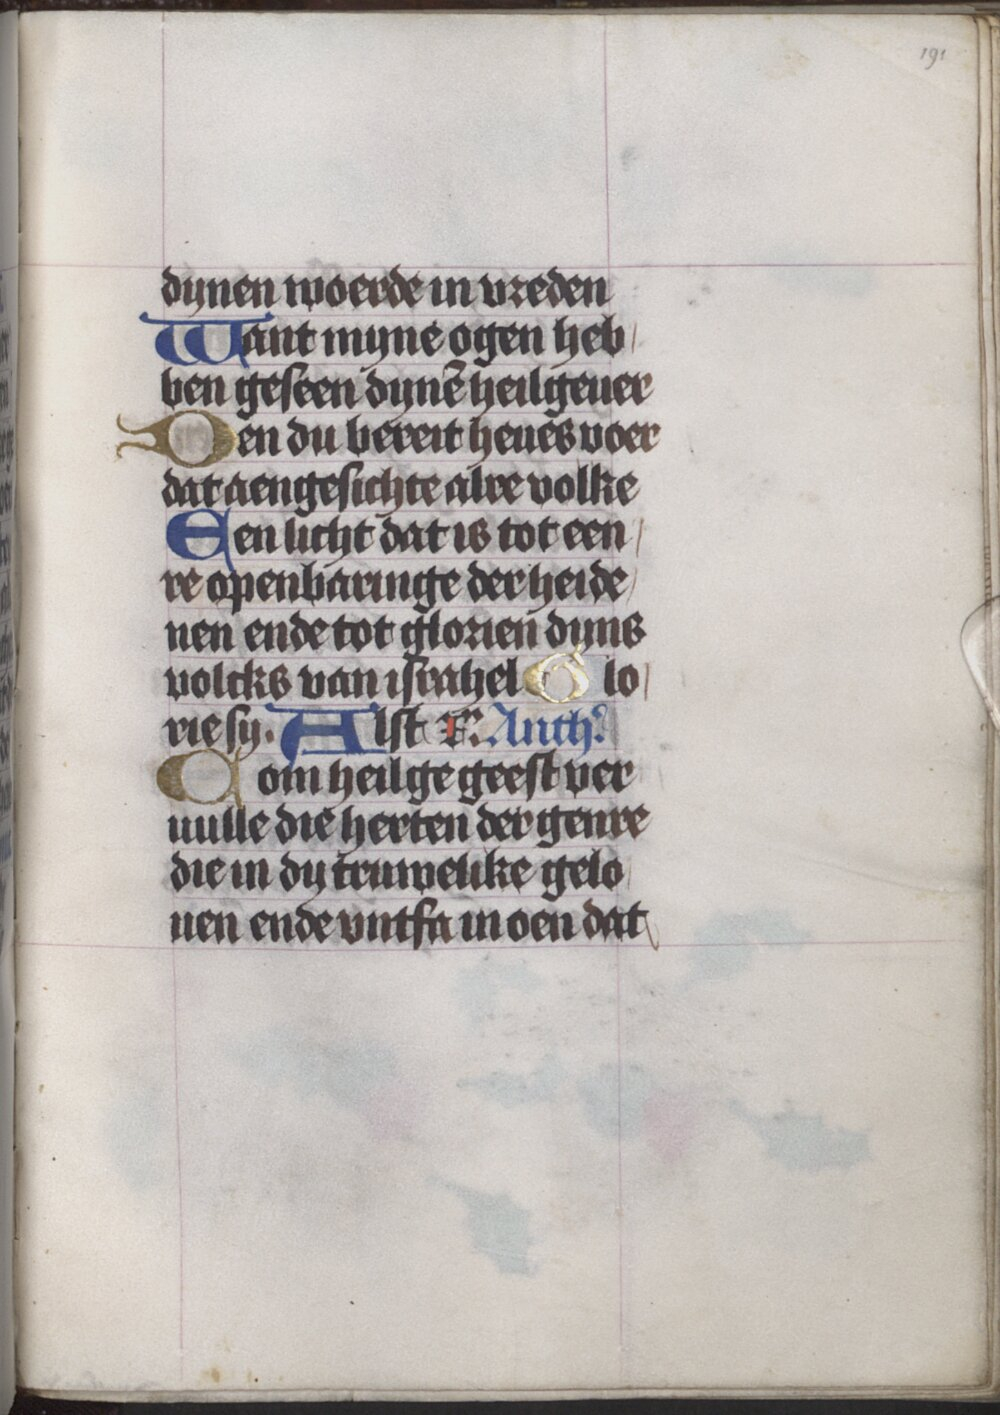 191
dynen woerde in vreden
Want myne ogen heb
ben geseen dynē heilgeuer
Den du bereit heues voer
dat aengesichte alre volke
Een licht dat is tot een
re openbaringe der heide
nen ende tot glorien dyns
volcks van israhel Glo
rie sy. Alst Anth?
Com heilge geest ver
uulle die herten der genre
die in dy truwelike gelo
uen ende vntfa in oen dat